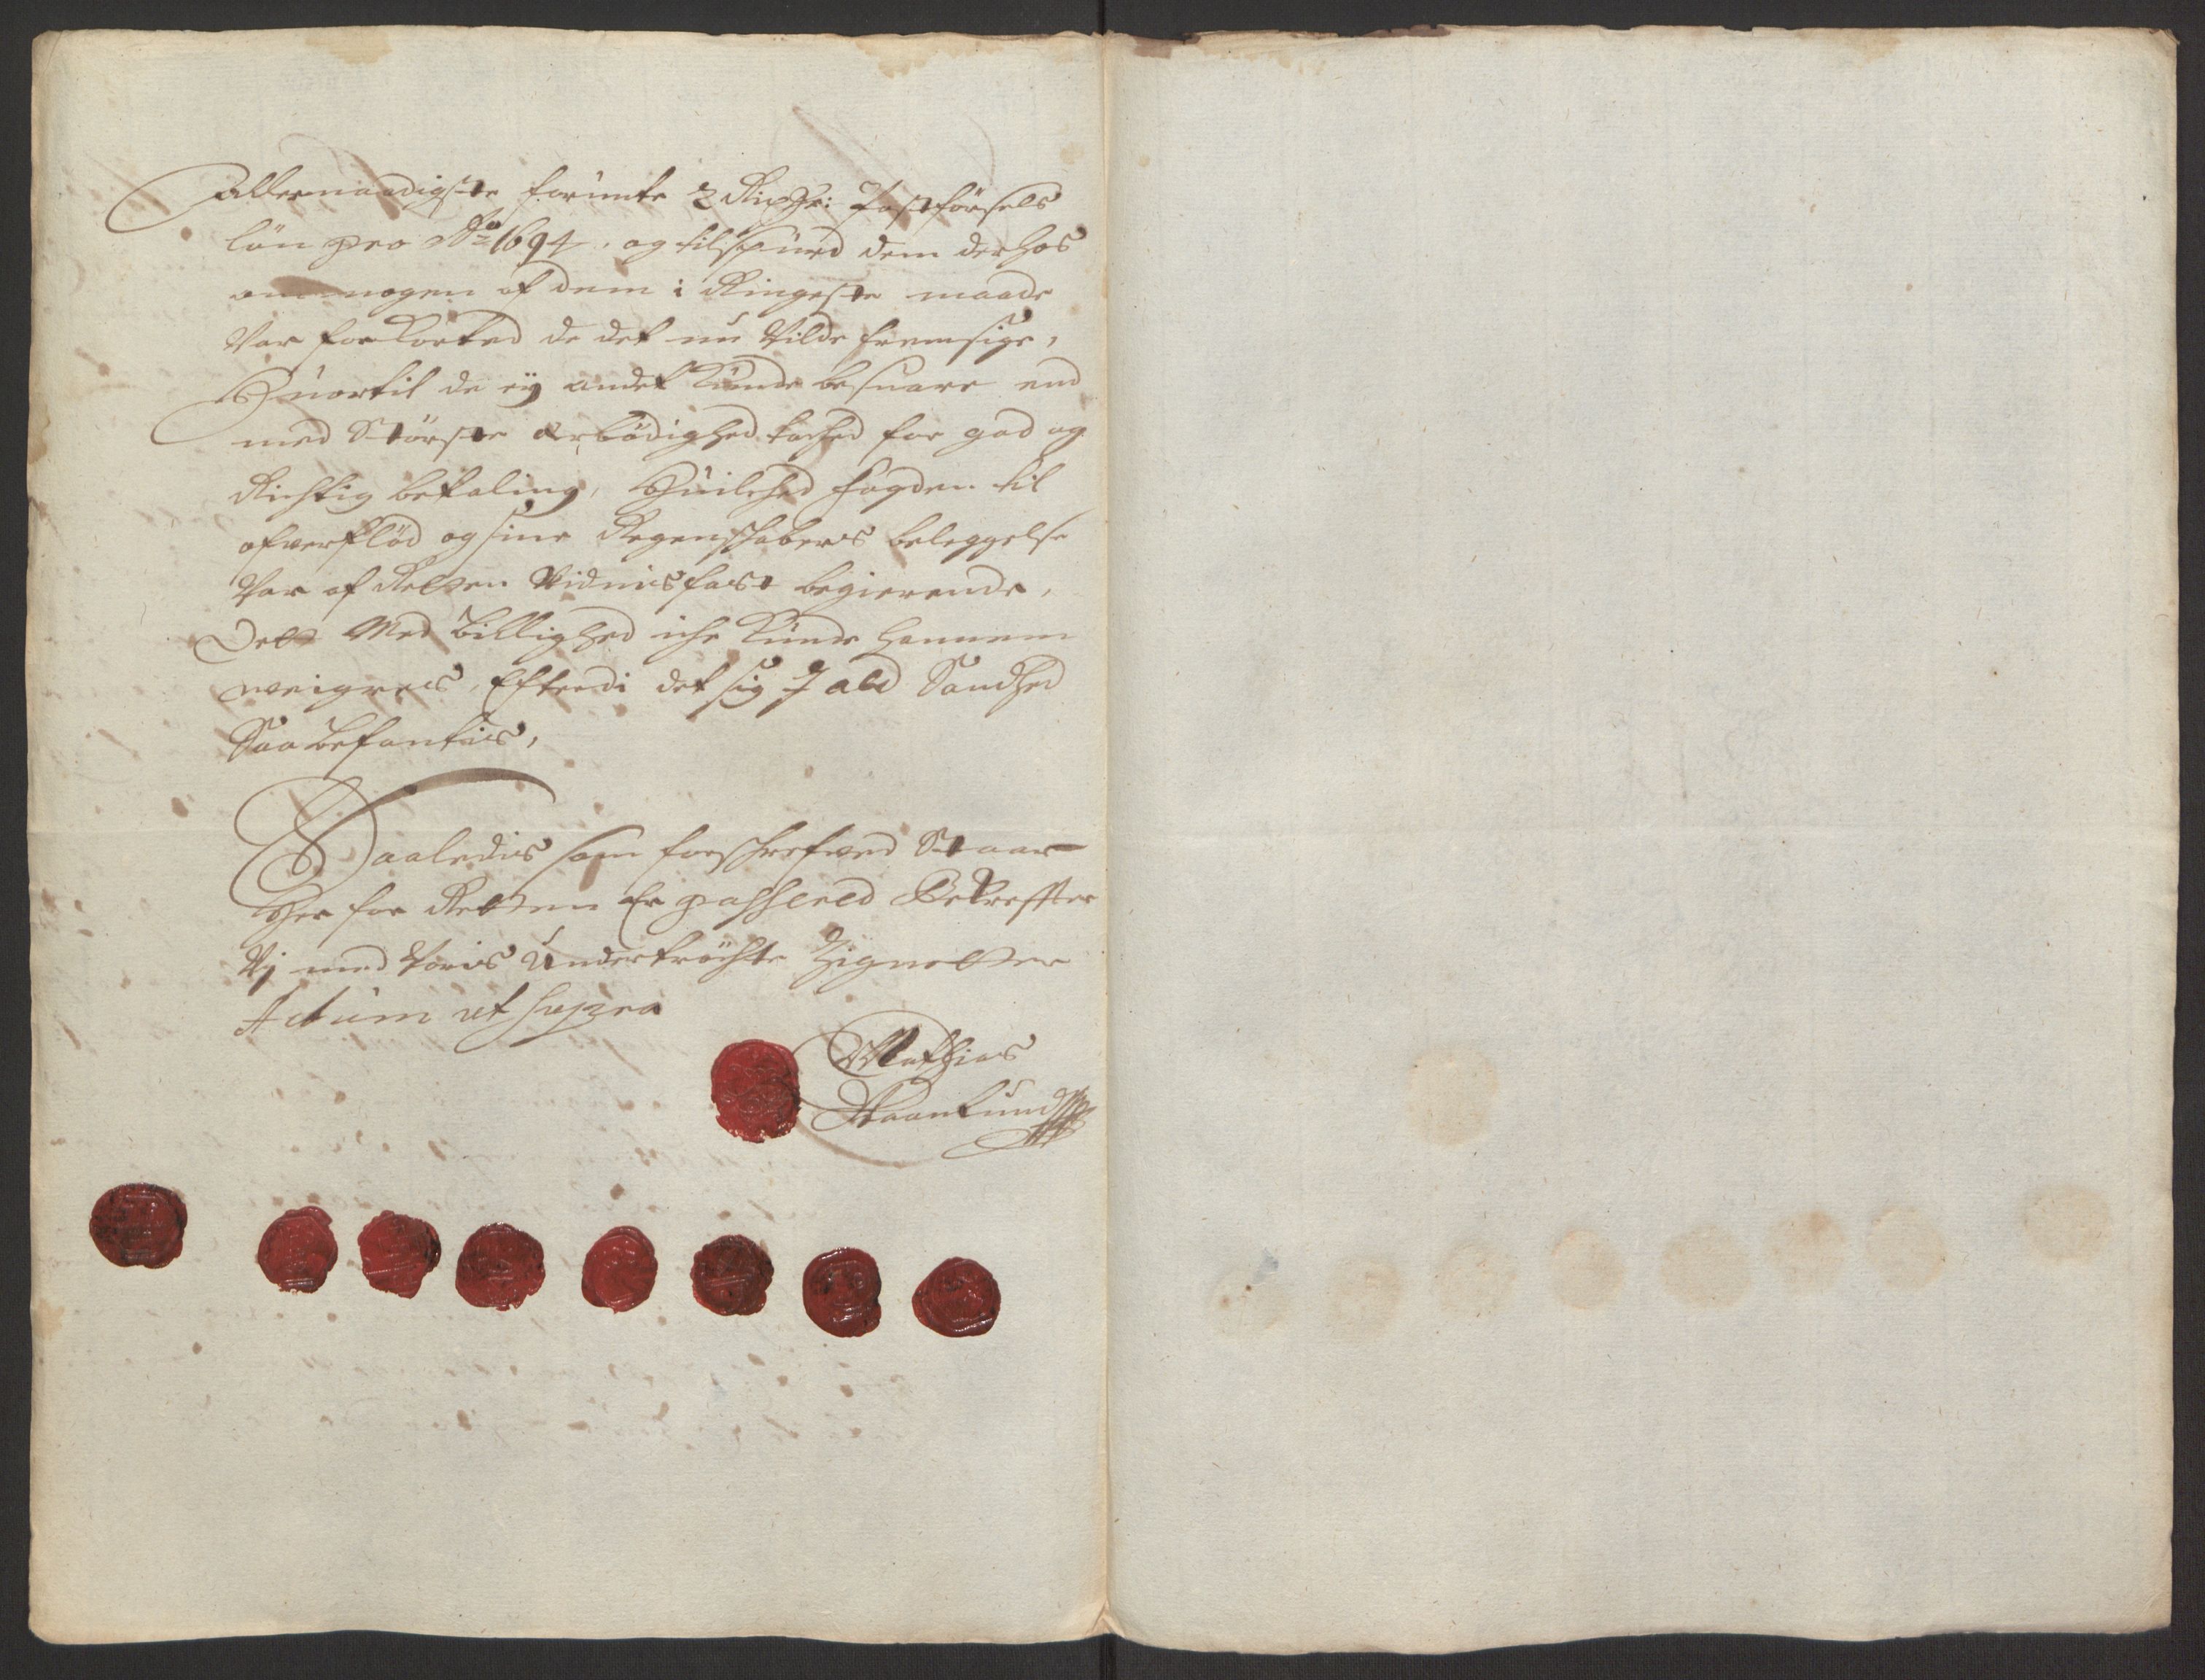 Allernaadigste forunte 2 Rixdr: Postförsels
lön pro Ao 1694, og tilspurd dem derhos
om nogen af dem i Ringeste maade
Var forKorted de det nu Vilde fremsige,
Huortil de eÿ andet Kunde besuare end
med Störste ærbödighed tached for god og
Richtig betaling, Huilched fogden til
ofverflöd og sine Regenschabers beleggelse
Var af Retten Vidnisfast begierende,
Det Med Billighed iche Kunde hannem
weigres, Efterdi det sig J ald Sandhed
Saa befantis,
Saaledis som forschrefved Staar
Her for Retten Er passered Bekreffter
Vj med Voris Undertröchte Zignetter
Actum ut supra
Mathias